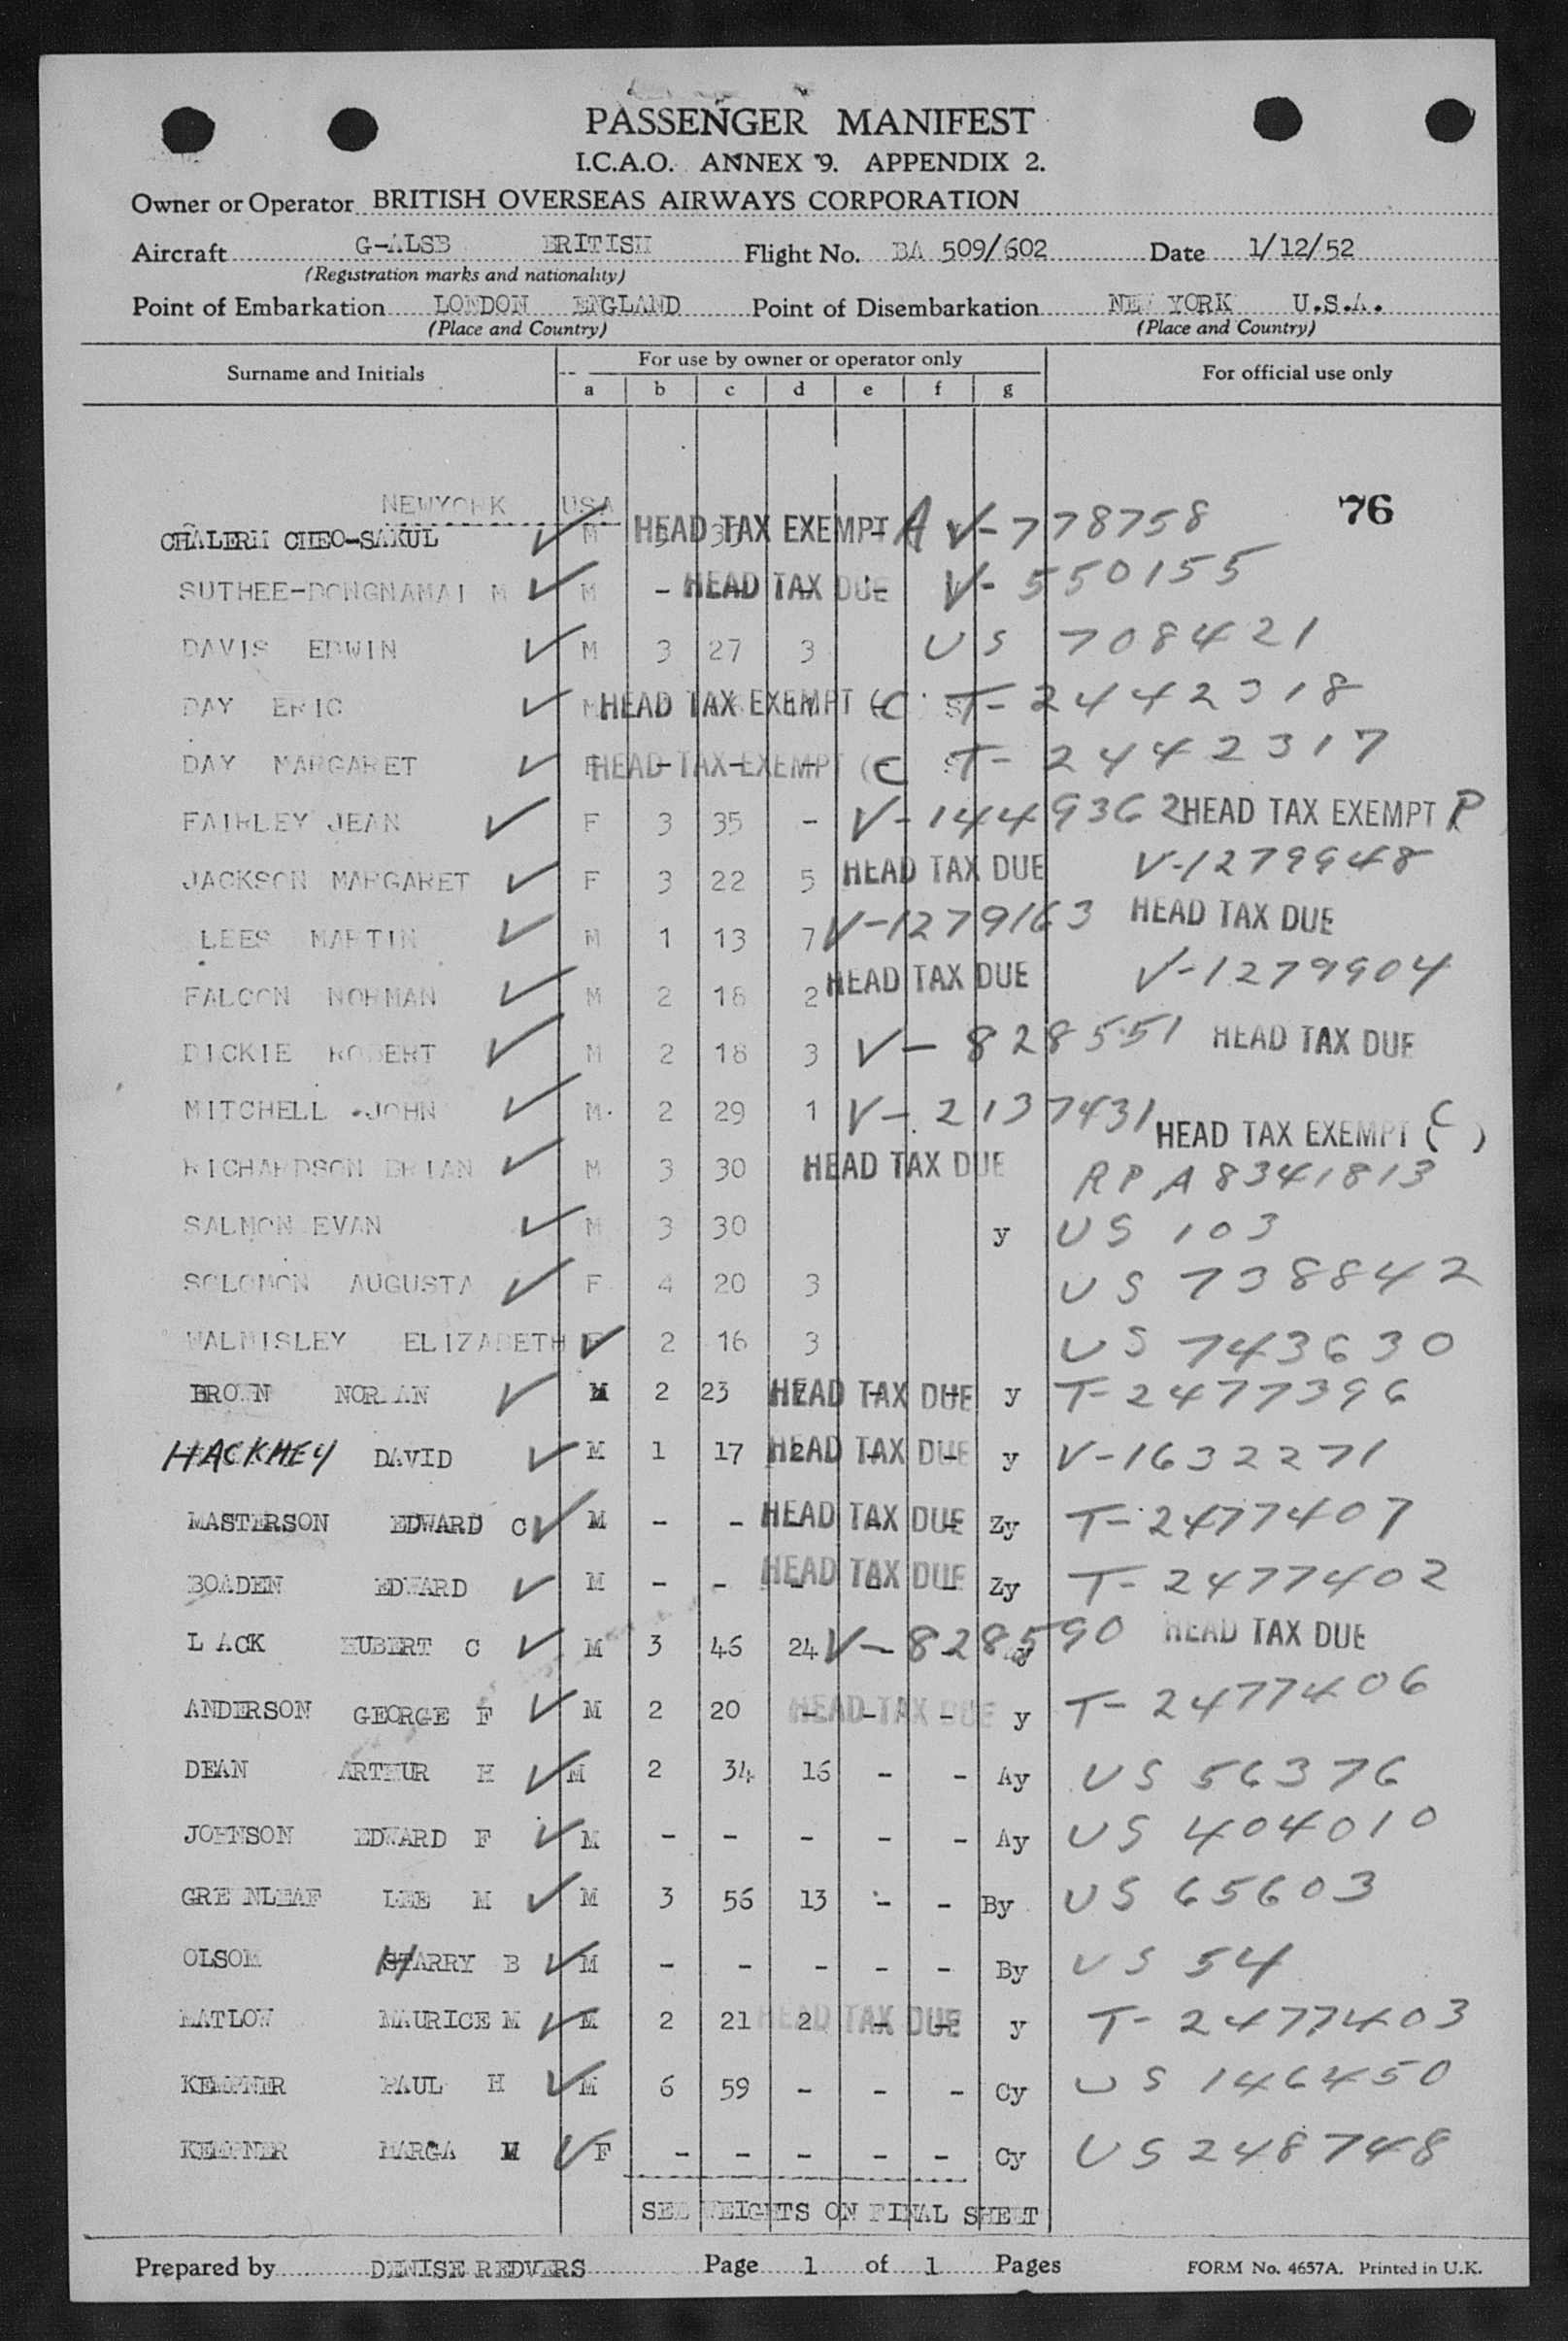 PASSENGER MANIFEST
I.C.A.O. ANNEX 9. APPENDIX 2.
Owner or Operator BRITISH OVERSEAS AIRWAYS CORPORATION
Aircraft G-ALSB BRITISH Flight No. BA 509/602 Date 1/12/52
(Registration marks and nationality)
Point of Embarkation LONDON ENGLAND Point of Disembarkation NEW YORK U.S.A.
(Place and Country) (Place and Country)
Surname and Initials For use by owner or operator only For official use only
a b c d e f g
NEWYORK USA 76
CHALERM CHEO-SAKUL M HEAD TAX EXEMPT A V-778758
SUTHEE-DONGNAMAI M M - HEAD TAX DUE V-550155
DAVIS EDWIN M 3 27 3 US 708421
DAY ERIC HEAD TAX EXEMPT (C T-2442318
DAY MARGARET F HEAD TAX EXEMPT (C T-2442317
FAIRLEY JEAN F 3 35 - V-1449362 HEAD TAX EXEMPT P
JACKSON MARGARET F 3 22 5 HEAD TAX DUE V-1279948
LEES MARTIN M 1 13 7 V-1279163 HEAD TAX DUE
FALCON NORMAN M 2 18 2 HEAD TAX DUE V-1279904
DICKIE ROBERT M 2 18 3 V-828551 HEAD TAX DUE
MITCHELL JOHN M 2 29 1 V-2137431 HEAD TAX EXEMPT (C)
RICHARDSON BRIAN M 3 30 HEAD TAX DUE RP A8341813
SALMON EVAN M 3 30 y US 103
SOLOMON AUGUSTA F 4 20 3 US 738842
WALMISLEY ELIZABETH F 2 16 3 US 743630
BROWN NORMAN M 2 23 HEAD TAX DUE y T-2477396
HACKNEY DAVID M 1 17 2 HEAD TAX DUE y V-1632271
MASTERSON EDWARD C M - - HEAD TAX DUE Zy T-2477407
BOADEN EDWARD M - - HEAD TAX DUE Zy T-2477402
LACK HUBERT C M 3 46 24 V-828590 HEAD TAX DUE
ANDERSON GEORGE F M 2 20 - HEAD TAX DUE y T-2477406
DEAN ARTHUR H M 2 34 16 - - Ay US 56376
JOHNSON EDWARD F M - - - - - Ay US 404010
GREENLEAF LEE M M 3 56 13 - - By US 65603
OLSOM HARRY B M - - - - - By US 54
MATLOW MAURICE M M 2 21 2 HEAD TAX DUE y T-2477403
KEMPNER PAUL H M 6 59 - - - Cy US 146450
KEMPNER MARGA M F - - - - - Cy US 248748
SEE WEIGHTS ON FINAL SHEET
Prepared by DENISE REDVERS Page 1 of 1 Pages FORM No. 4657A. Printed in U.K.